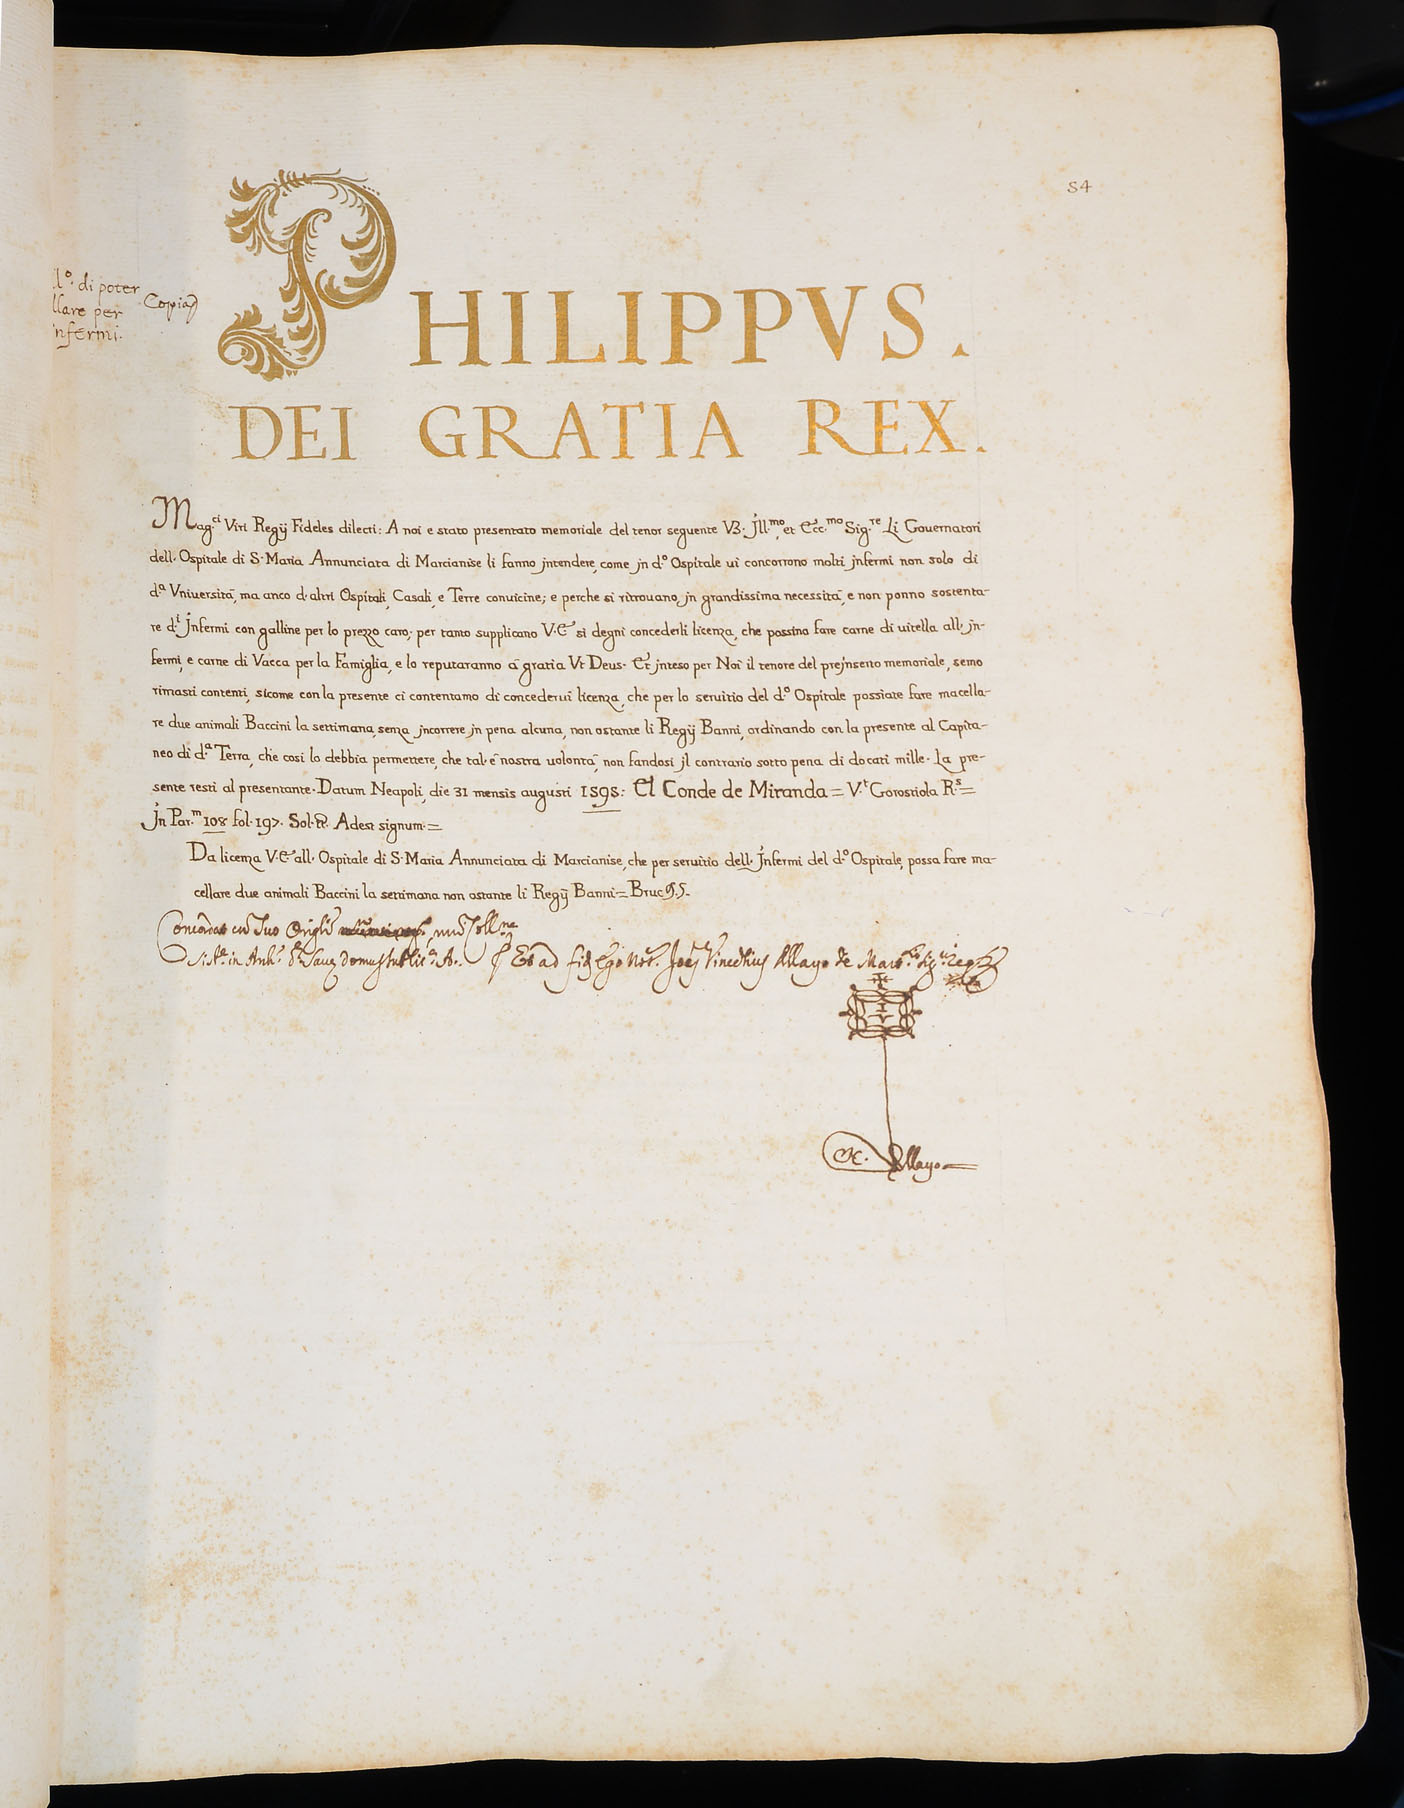 54
di poter
per
Copia
PHILIPPVS.
DEI GRATIA REX.
Mag.ci Viri Regij Fideles dilecti: A noi e stato presentato memoriale del tenor seguente V3. Jll.mo et Ecc.mo Sig.re Li Gouernatori
dell. Ospitale di S. Maria Annunciata di Marcianise li fanno jntendere, come jn d.o Ospitale ui concorrono molti jnfermi non solo di
d.a Vniuersità, ma anco d. altri Ospitali, Casali, e Terre conuicine; e perche si ritrouano, jn grandissima necessità, e non ponno sostenta-
re d.i Jnfermi con galline per lo prezzo caro, per tanto supplicano V.E si degni concederli licenza, che possino fare carne di uitella all. jn-
fermi, e carne di Vacca per la Famiglia, e lo reputaranno à gratia Vt Deus. Et jnteso per Noi il tenore del prejnserto memoriale, semo
rimasti contenti, sicome con la presente ci contentamo di concederui licenza, che per lo seruitio del d.o Ospitale possiate fare macella-
re due animali Baccini la settimana, senza jncorrere jn pena alcuna, non ostante li Regij Banni, ordinando con la presente al Capita-
neo di d.a Terra, che cosi lo debbia permettere, che tal. è nostra uolontà, non fandosi jl contrario sotto pena di docati mille. La pre-
sente resti al presentante. Datum Neapoli, die 31 mensis augusti 1595: El Conde de Miranda = V.t Gorostiola R.s =
Jn Par.m 108 fol. 197. Sol. Adest signum. =
Da licenza V.E all. Ospitale di S. Maria Annunciata di Marcianise, che per seruitio dell. Jnfermi del d.o Ospitale, possa fare ma-
cellare due animali Baccini la settimana non ostante li Regij Banni =
in domus
Et ad Ego Not.
Allayo